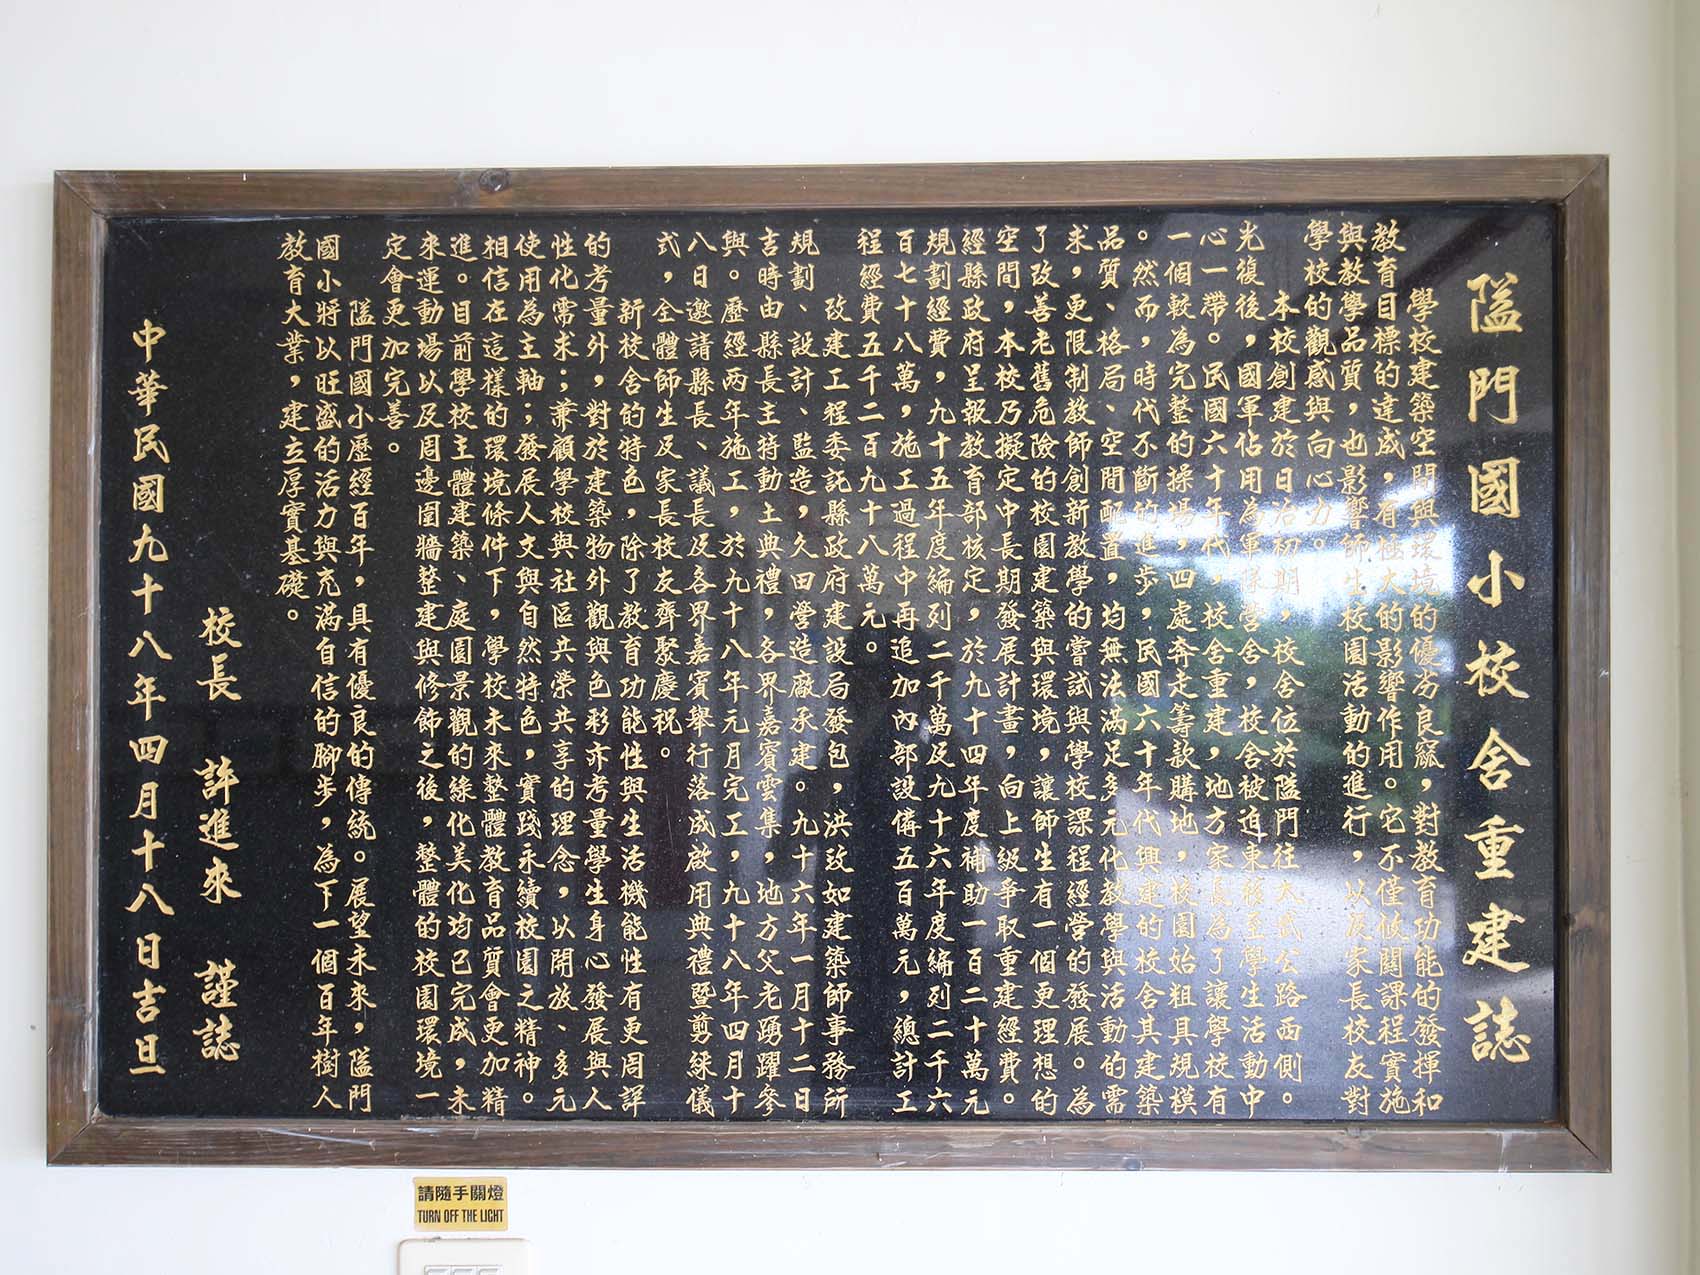 隘門國小校舍重建誌
學校建築空間與環境的優劣良窳，對教育功能的發揮和
教育目標的達成，有極大的影響作用。它不僅攸關課程實施
與教學品質，也影響師生校園活動的進行，以及家長校友對
學校的觀感與向心力。
本校創建於日治初期，校舍位於隘門往太武公路西側。
光復後，國軍佔用為軍隊營舍，校舍被迫東移至學生活動中
心一帶。民國六十年代，校舍重建，地方家長為了讓學校有
一個較為完整的操場，四處奔走籌款購地，校園始粗具規模
。然而，時代不斷的進步，民國六十年代興建的校舍其建築
品質、格局、空間配置，均無法滿足多元化教學與活動的需
求，更限制教師創新教學的嘗試與學校課程經營的發展。為
了改善老舊危險的校園建築與環境，讓師生有一個更理想的
空間，本校乃擬定中長期發展計畫，向上級爭取重建經費。
經縣政府呈報教育部核定，於九十四年度補助一百二十萬元
規劃經費，九十五年度編列二千萬及九十六年度編列二千六
百七十八萬，施工過程中再追加內部設備五百萬元，總計工
程經費五千二百九十八萬元。
改建工程委託縣政府建設局發包，洪致如建築師事務所
規劃、設計、監造，久田營造廠承建。九十六年一月十二日
吉時由縣長主持動土典禮，各界嘉賓雲集，地方父老踴躍參
與。歷經兩年施工，於九十八年元月完工，九十八年四月十
八日邀請縣長、議長及各界嘉賓舉行落成啟用典禮暨剪綵儀
式，全體師生及家長校友齊聚慶祝。
新校舍的特色，除了教育功能性與生活機能性有更周詳
的考量外，對於建築物外觀與色彩亦考量學生身心發展與人
性化需求；兼顧學校與社區共榮共享的理念，以開放、多元
使用為主軸；發展人文與自然特色，實踐永續校園之精神。
相信在這樣的環境條件下，學校未來整體教育品質會更加精
進。目前學校主體建築、庭園景觀的綠化美化均已完成，未
來運動場以及周邊圍牆整建與修飾之後，整體的校園環境一
定會更加完善。
隘門國小歷經百年，具有優良的傳統。展望未來，隘門
國小將以旺盛的活力與充滿自信的腳步，為下一個百年樹人
教育大業，建立厚實基礎。
校長 許進來 謹誌
中華民國九十八年四月十八日吉旦
請隨手關燈
TURN OFF THE LIGHT